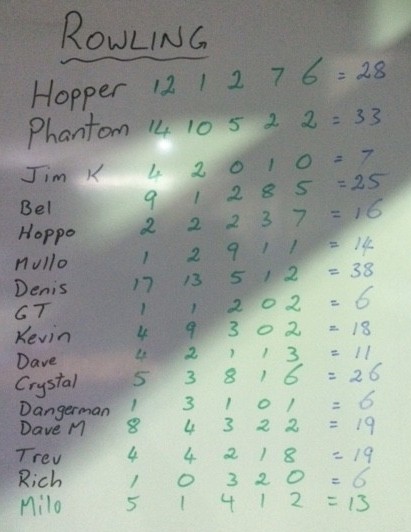 ROWLING
Hopper 12 1 2 7 6 = 28
Phantom 14 10 5 2 2 = 33
Jim K 4 2 0 1 0 = 7
Bel 9 1 2 8 5 = 25
Hoppo 2 2 2 3 7 = 16
Mullo 1 2 9 1 1 = 14
Denis 17 13 5 1 2 = 38
GT 1 1 2 0 2 = 6
Kevin 4 9 3 0 2 = 18
Dave 4 2 1 1 3 = 11
Crystal 5 3 8 1 6 = 26
Dangerman 1 3 1 0 1 = 6
Dave M 8 4 3 2 2 = 19
Trev 4 4 2 1 8 = 19
Rich 1 0 3 2 0 = 6
Milo 5 1 4 1 2 = 13